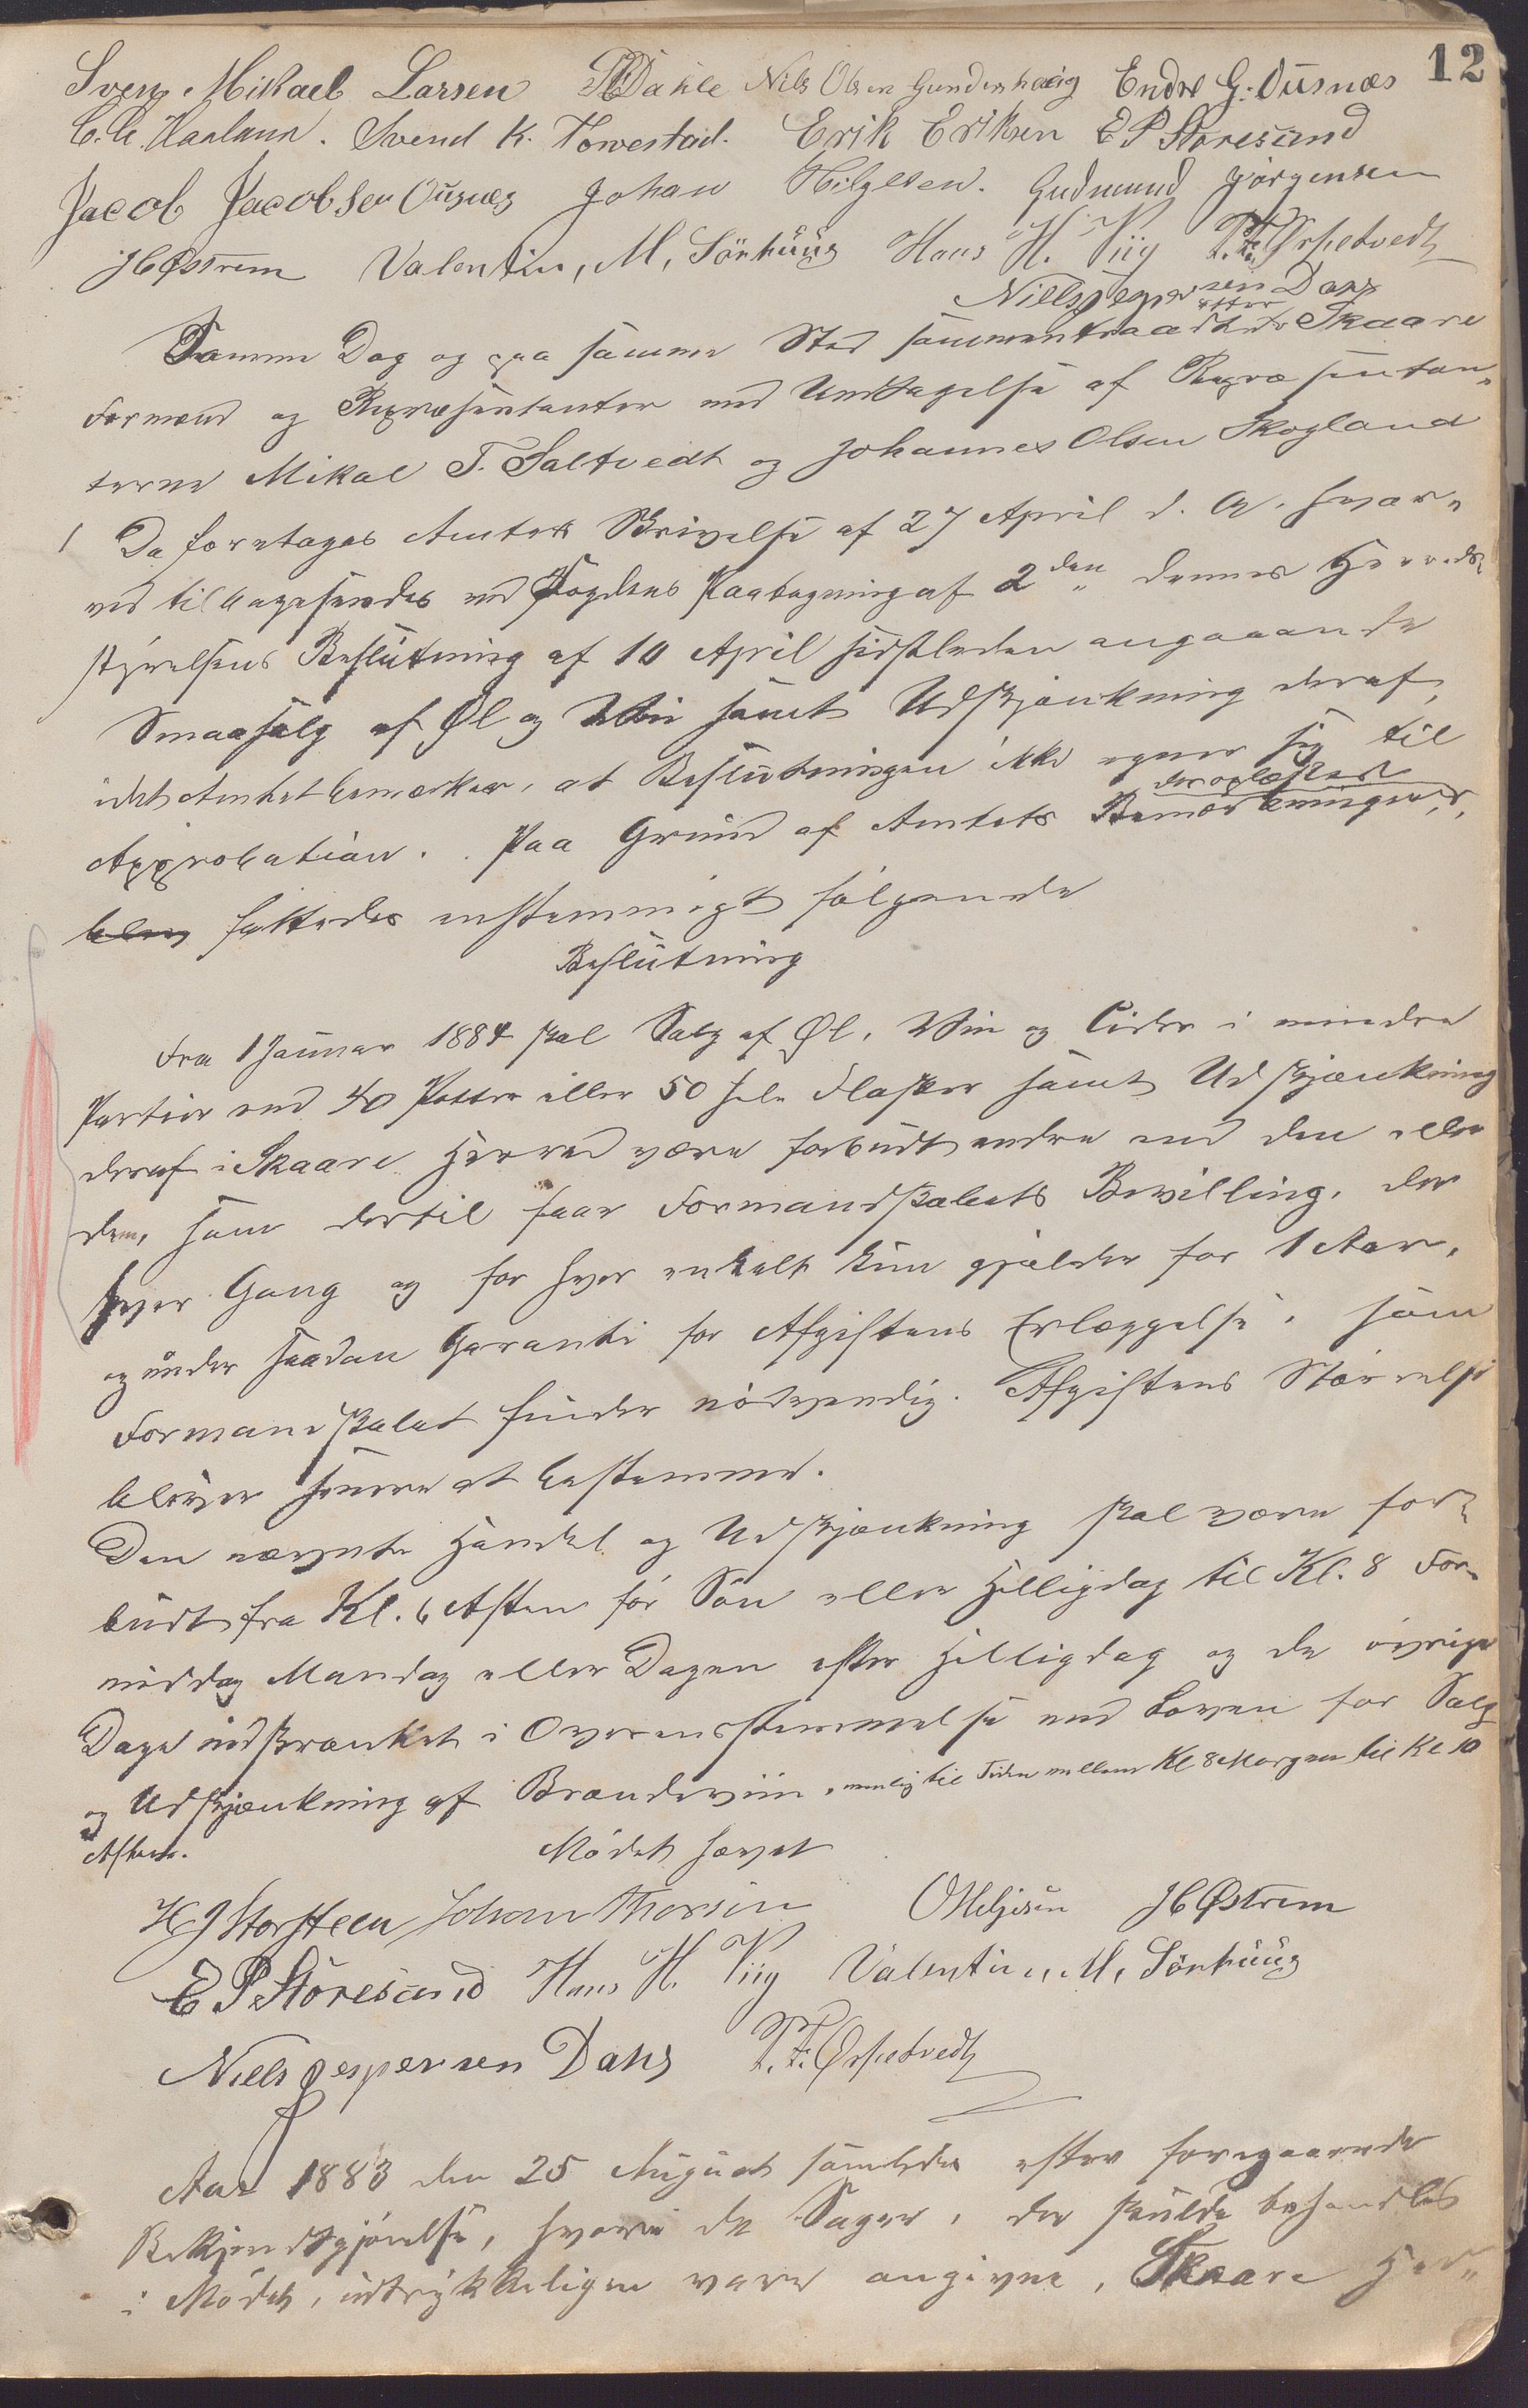 12
Sven Mikael Larsen Dahle Niels Olsen Gundershaug Endre G. Ousnæs
Svend K. Erik Eriksen E P Storesund
Jacob Jacobsen Ousnæs Johan Helgesen. Gudmund Jørgensen
HØstrem Valentin, M, Sörhuug Hans H. Viig T. F. Ørpetvedt
Niels Jespersen Dahs
efter
Samme Dag og paa samme Sted sammentraadte Skaare
Formænd og Repræsentanter med Undtagelse af Repræsentan„
terne Mikal T. Saltvedt og Johannes Olsen Skogland
1 Da foretages Amtets Skrivelse af 27 April d. A. hvor„
ved tilbagesendes med Fogdens Paategning af 2den dennes Herreds„
styrelsens Beslutning af 10 April sidstleden angaaende
Smaasalg af Øl og Vin samt Udskjænkning deraf,
idet Amtet bemærker, at Beslutningen ikke egner sig til
Approbation. Paa Grund af Amtets Bemærkninger,
der oplæstes
blev fattedes enstemmigt følgende
Beslutning
Fra 1 Januar 1884 skal Salg af Øl, Vin og Cider i mindre
Partier end 40 Potter eller 50 hele Flasker samt Udskjænkning
deraf i Skaare Herred være forbudt andre end den eller
dem, som dertil faar Formandskabets Bevilling, der
hver Gang og for hver enkelt kun gjælder for 1 Aar,
og under saadan Garanti for Afgiftens Erlæggelse, som
Formandskabet finder nödvendig. Afgiftens Störrelse
bliver senere at bestemme.
Den nævnte Handel og Udskjænkning skal være for„
budt fra Kl. 6 Aften för Sön eller Helligdag til Kl. 8 For„
middag Mandag eller Dagen efter Helligdag og de övrige
Dage indskrænket i Overensstemmelse med Loven for Salg
og Udskjænkning af Brændeviin, nemlig til Tiden mellem Kl 8 Morgen til Kl 10
Aften.
Mödet hævet
H J Storsteen Johan Thorsen OHelgesen HØstrem
E P Storesund Hans H. Viig Valentin, M, Sörhuug
Niels Jespersen Dahs T. F. Ørpetvedt
Aar 1883 den 25 August samledes efter foregaaende
Bekjendtgjörelse, hvori de Sager, der skulde behandles
i Mödet, udtrykkeligen vare angivne, Skaare Her„